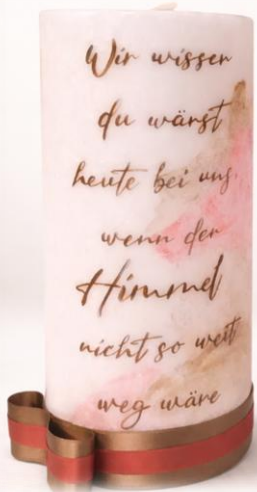 Wir wissen
du wärst
heute bei uns.
wenn der
Himmel
nicht so weit
weg wäre